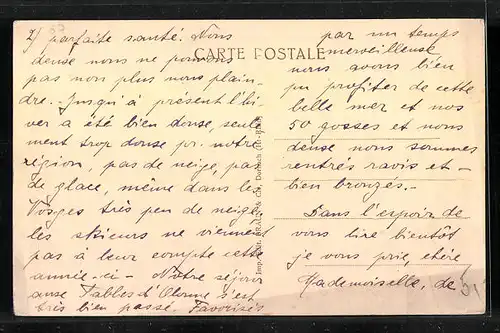 2) parfaite santé. Nous
deuse nous ne pouvons
pas non plus nous plain-
dre. Jusqu'à présent l'hi-
ver a été bien douse, seule
ment trop douse pr. notre
région, pas de neige, pas
de glace, même dans les
Vosges très peu de neige
les skieurs ne viennent
pas à leur compte cette
année-ci - Notre séjour
aux Sables d'Olonne s'est
très bien passé. Favorisés
CARTE POSTALE
par un temps
merveilleuse
nous avons bien
pu profiter de cette
belle mer et nos
50 gosses et nous
deuse nous sommes
rentrés ravis et -
bien bronzés. -
Dans l'espoir de
vous lire bientôt
je vous prie, chère
Mademoiselle, de